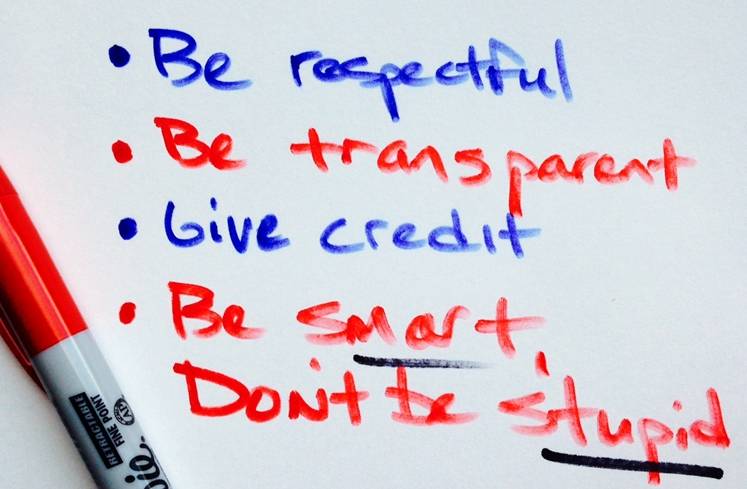 • Be respectful
• Be transparent
• Give credit
• Be smart,
Don't be stupid
RETRACTABLE
FINE POINT
AP